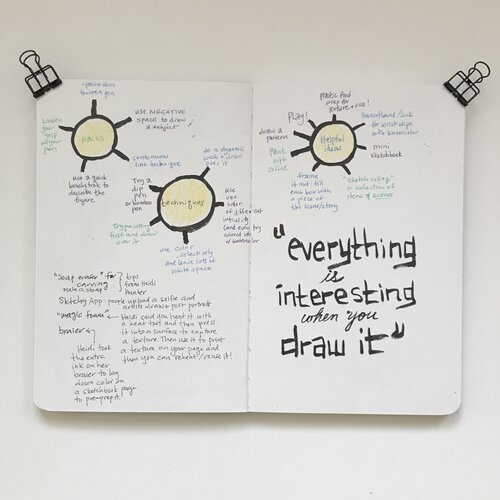 Loosen
your
grip
of your
pen
USE NEGATIVE
SPACE to draw
a subject
Habits
continuous
line technique
use a quick
brushstroke to
describe the
figure
do a dynamic
wash & draw
over it
Try a
dip
pen
or bamboo
pen
techniques
use
one
color
of different
intensity
(and even try
colored inks
or watercolor
Try painting
first and draw
over it
use color
selectively
and leave lots of
white space
"soap eraser" for
carving
make a stamp
tips
from Heidi
Sketchy App: people upload a selfie and
artists draw + post portraits
"magic foam" - Heidi said you heat it with
a heat tool and then press
it into a surface to capture
a texture. Then use it to print
a texture on your page and
then you can "reheat"/reuse it!
brayer
Heidi took
the extra
ink on her
brayer to lay
down color on
a sketchbook page
to pre-prep it!
Plastic food
wrap for
texture + rice!
Play!
Sweatband/sock
for wrist wipe
with watercolor
draw a
pattern
Helpful
ideas
Paint
with
coffee
mini
sketchbook
frame
it out: fill
each box with
a piece of
the scene/story
"Sketch collage"
a collection of
items & scenes
"everything
is
interesting
when you
draw it"